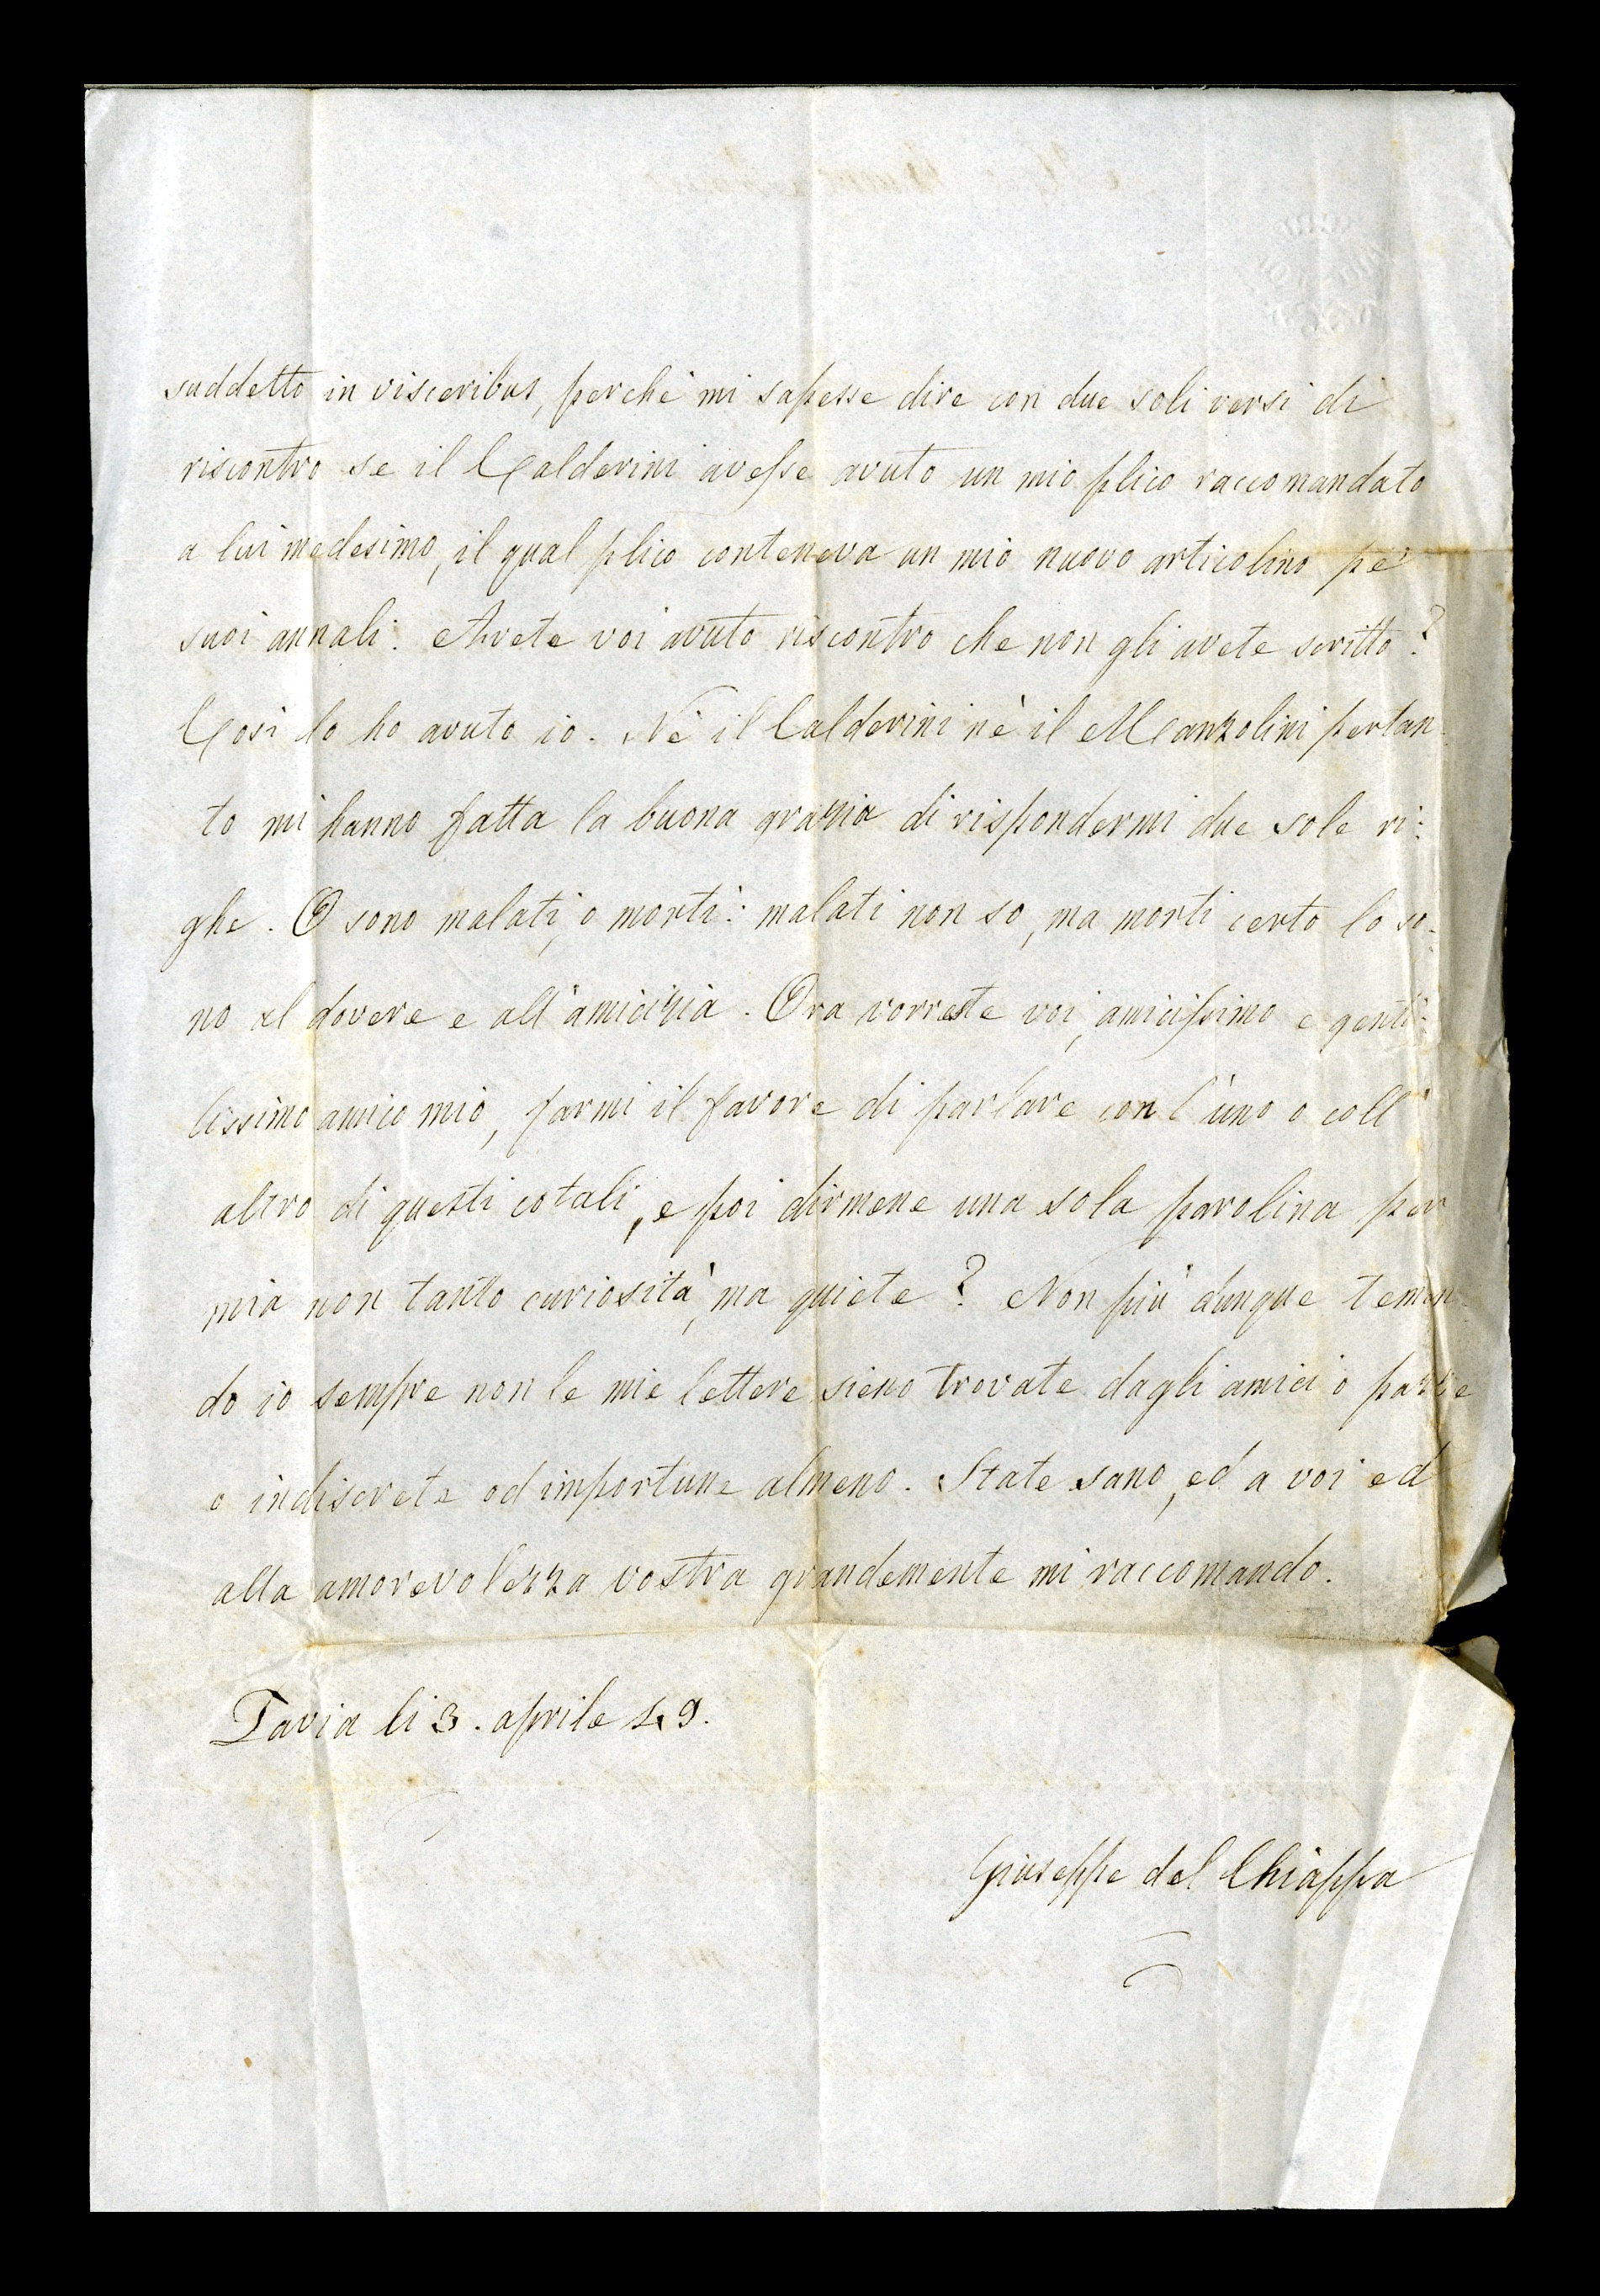 suddetto in visceribus, perchè mi sapesse dire con due soli versi di
riscontro se il Calderini avesse avuto un mio plico raccomandato
a lui medesimo, il qual plico conteneva un mio nuovo articolino pe'
suoi annali. Avete voi avuto riscontro che non gli avete scritto?
Così lo ho avuto io. Nè il Calderini nè il Manzolini pertan-
to mi hanno fatta la buona grazia di rispondermi due sole ri:
ghe. O sono malati, o morti: malati non so, ma morti certo lo so-
no al dovere e all'amicizia. Ora vorreste voi, amicissimo e genti:
lissimo amico mio, farmi il favore di parlare con l'uno o coll'
altro di questi cotali, e poi dirmene una sola parolina per
mia non tanto curiosità, ma quiete? Non più dunque temen
do io sempre non le mie lettere sieno trovate dagli amici o pazze
o indiscrete od importune almeno. State sano, ed a voi ed
alla amorevolezza vostra grandemente mi raccomando.
Pavia li 3. aprile 49.
Giuseppe del Chiappa